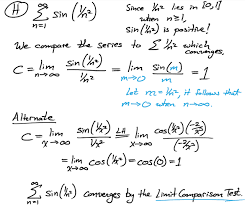 (H) ∞∑n=1 sin(1/n²) Since 1/n² lies in [0,1]
when n≥1,
sin(1/n²) is positive!
We compare the series to ∑ 1/n² which converges,
C = lim n→∞ sin(1/n²) / 1/n² = lim m→0 sin(m) / m = 1
Let m = 1/n², it follows that
m→0 when n→∞.
Alternate
C = lim x→∞ sin(1/x²) / 1/x² LH= lim x→∞ cos(1/x²)(-2/x³) / (-2/x³)
= lim x→∞ cos(1/x²) = cos(0) = 1
∞∑n=1 sin(1/n²) converges by the Limit Comparison Test.